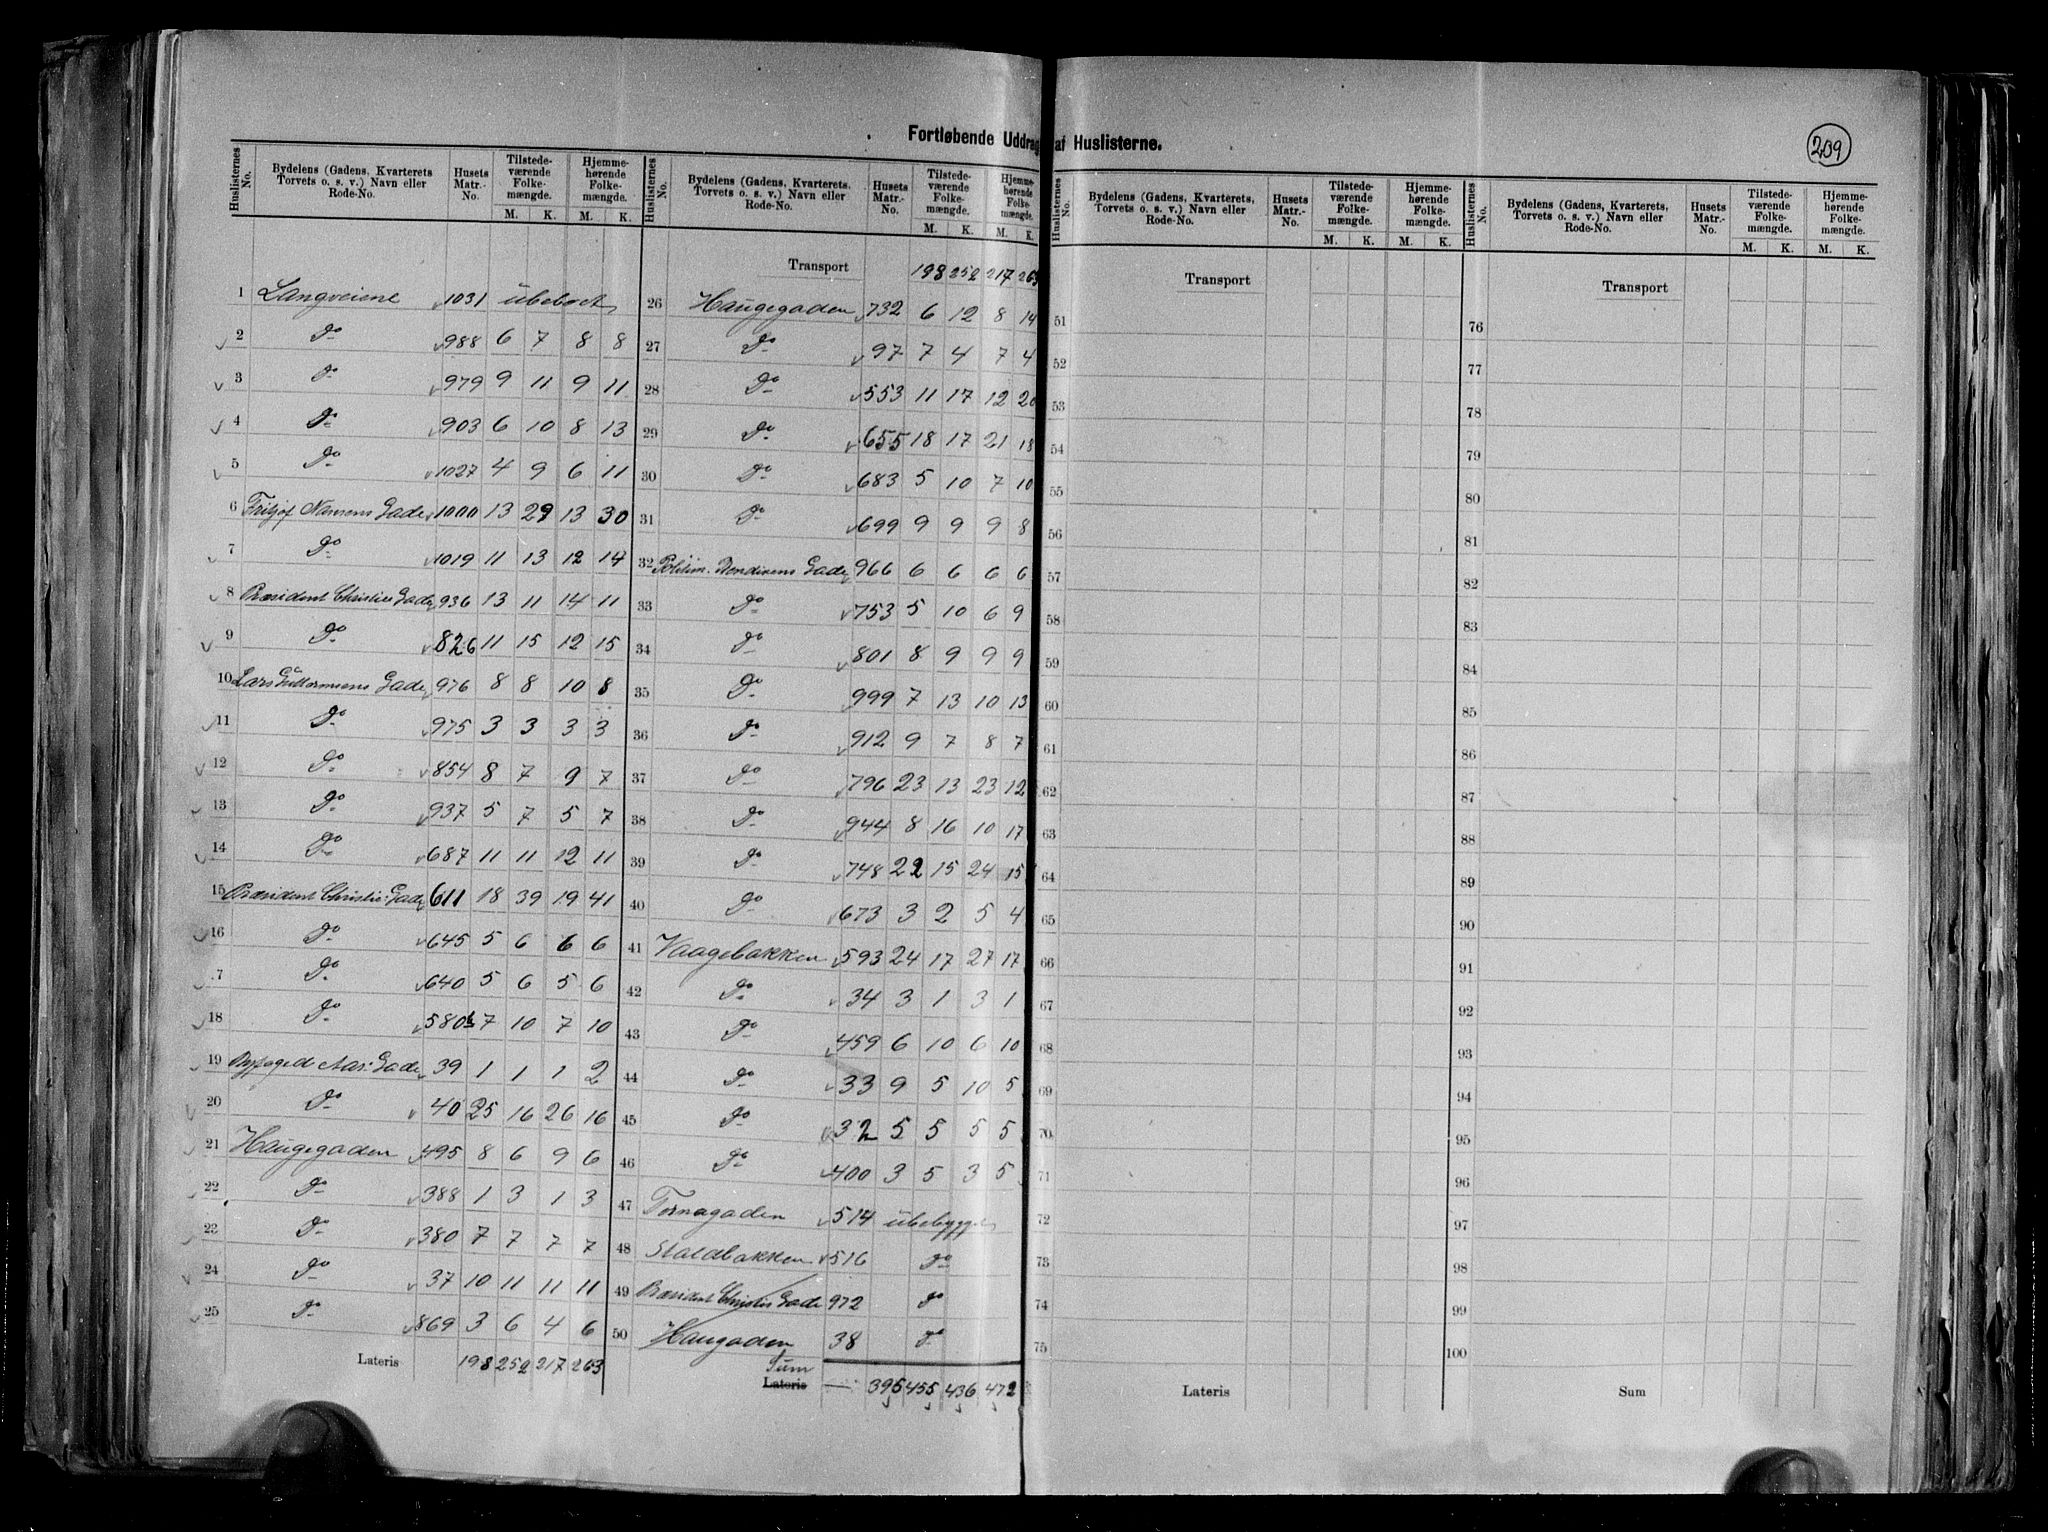 Fortløbende Uddrag af Huslisterne.
209
Huslisternes No. Bydelens (Gadens, Kvarterets, Torvets o. s. v.) Navn eller Rode-No. Husets Matr.-No. Tilstedeværende Folkemængde. Hjemmehørende Folkemængde.
M. K. M. K.
1 Langveiene 1031 ubeboet
2 Do 988 6 7 8 8
3 Do 979 9 11 9 11
4 Do 903 6 10 8 13
5 Do 1027 4 9 6 11
6 Fritjof Nansens Gade 1000 13 29 13 30
7 Do 1019 11 13 12 14
8 Præsident Christies Gade 936 13 11 14 11
9 Do 826 11 15 12 15
10 Lars Guttormsens Gade 976 8 8 10 8
11 Do 975 3 3 3 3
12 Do 854 8 7 9 7
13 Do 937 5 7 5 7
14 Do 687 11 11 12 11
15 Præsident Christie: Gade 611 18 39 19 41
16 Do 645 5 6 6 6
17 Do 640 5 6 5 6
18 Do 580b 7 10 7 10
19 Byfoged Aas: Gade 39 1 1 1 2
20 Do 40 25 16 26 16
21 Haugegaden 495 8 6 9 6
22 Do 388 1 3 1 3
23 Do 380 7 7 7 7
24 Do 37 10 11 11 11
25 Do 869 3 6 4 6
Lateris 198 252 217 263
Huslisternes No. Bydelens (Gadens, Kvarterets, Torvets o. s. v.) Navn eller Rode-No. Husets Matr.-No. Tilstedeværende Folkemængde. Hjemmehørende Folkemængde.
M. K. M. K.
Transport 198 252 217 263
26 Haugegaden 732 6 12 8 14
27 Do 97 7 4 7 4
28 Do 553 11 17 12 20
29 Do 655 18 17 21 18
30 Do 683 5 10 7 10
31 Do 699 9 9 9 8
32 Politim. Bendixens Gade 966 6 6 6 6
33 Do 753 5 10 6 9
34 Do 801 8 9 9 9
35 Do 999 7 13 10 13
36 Do 912 9 7 8 7
37 Do 796 23 13 23 12
38 Do 944 8 16 10 17
39 Do 748 22 15 24 15
40 Do 673 3 2 5 4
41 Vaagebakken 593 24 17 27 17
42 Do 34 3 1 3 1
43 Do 459 6 10 6 10
44 Do 33 9 5 10 5
45 Do 32 5 5 5 5
46 Do 400 3 5 3 5
47 Tornagaden 514 ubebygget
48 Staldbakken 516 Do
49 Præsident Christies Gade 972 Do
50 Haugaden 38 Do
Sum
Lateris 395 455 436 472
Huslisternes No. Bydelens (Gadens, Kvarterets, Torvets o. s. v.) Navn eller Rode-No. Husets Matr.-No. Tilstedeværende Folkemængde. Hjemmehørende Folkemængde.
M. K. M. K.
Transport
51
52
53
54
55
56
57
58
59
60
61
62
63
64
65
66
67
68
69
70
71
72
73
74
75
Lateris
Huslisternes No. Bydelens (Gadens, Kvarterets, Torvets o. s. v.) Navn eller Rode-No. Husets Matr.-No. Tilstedeværende Folkemængde. Hjemmehørende Folkemængde.
M. K. M. K.
Transport
76
77
78
79
80
81
82
83
84
85
86
87
88
89
90
91
92
93
94
95
96
97
98
99
100
Sum